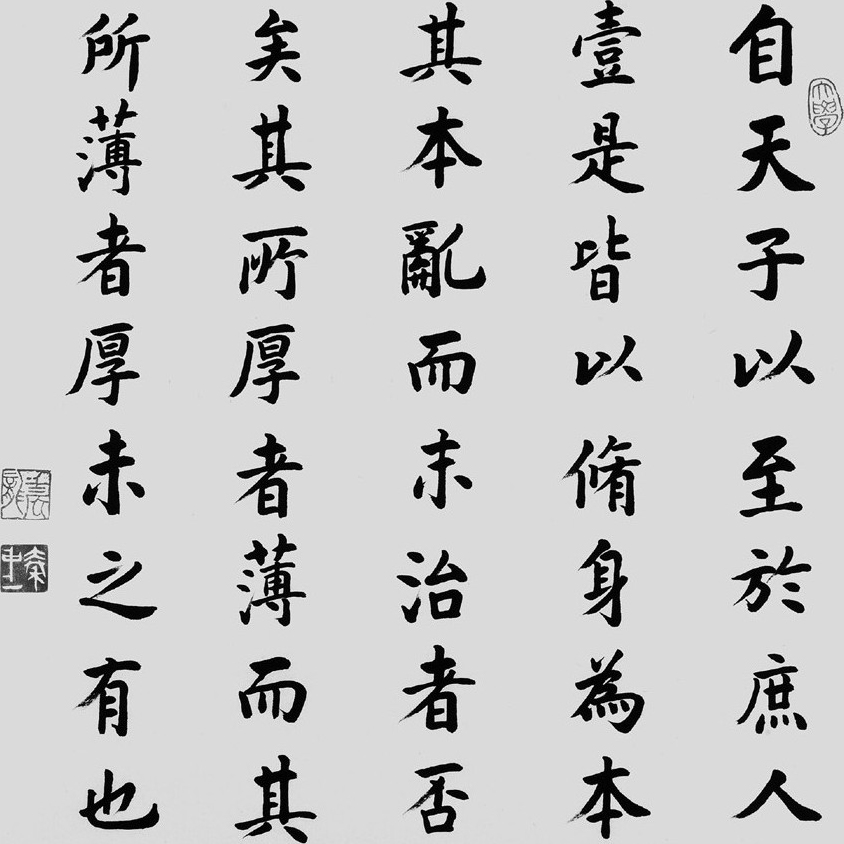 自天子以至於庶人
壹是皆以脩身為本
其本亂而末治者否
矣其所厚者薄而其
所薄者厚未之有也
大學